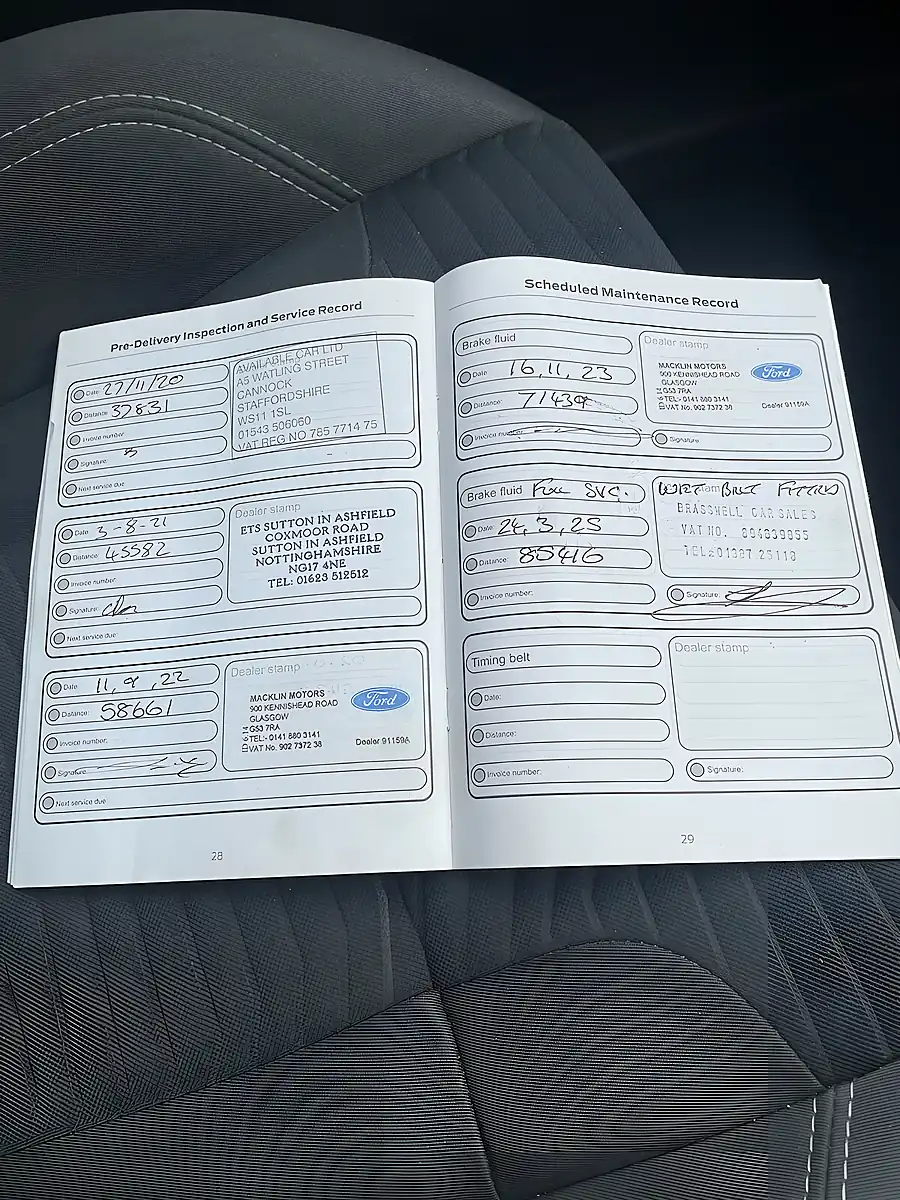 Pre-Delivery Inspection and Service Record
Date: 27/11/20
Distance: 37831
Invoice number:
Signature:
Next service due:
AVAILABLE CAR LTD
A5 WATLING STREET
CANNOCK
STAFFORDSHIRE
WS11 1SL
01543 506060
VAT REG NO 785 7714 75
Date: 3-8-21
Distance: 45582
Invoice number:
Signature:
Next service due:
Dealer stamp
ETS SUTTON IN ASHFIELD
COXMOOR ROAD
SUTTON IN ASHFIELD
NOTTINGHAMSHIRE
NG17 4NE
TEL: 01623 512512
Date: 11, 9, 22
Distance: 58661
Invoice number:
Signature:
Next service due:
Dealer stamp
MACKLIN MOTORS
900 KENNISHEAD ROAD
GLASGOW
G53 7RA
TEL:- 0141 880 3141
VAT No. 902 7372 38
Ford
Dealer 91159A
28
Scheduled Maintenance Record
Brake fluid
Date: 16, 11, 23
Distance: 71439
Invoice number:
Dealer stamp
MACKLIN MOTORS
900 KENNISHEAD ROAD
GLASGOW
G53 7RA
TEL:- 0141 880 3141
VAT No. 902 7372 38
Ford
Dealer 91159A
Signature:
Brake fluid Full SVC.
Date: 24, 3, 25
Distance: 85416
Invoice number:
WET BELT FITTED
BRASSWELL CAR SALES
VAT NO. 804839855
TEL:01387 25118
Signature:
Timing belt
Date:
Distance:
Invoice number:
Dealer stamp
Signature:
29